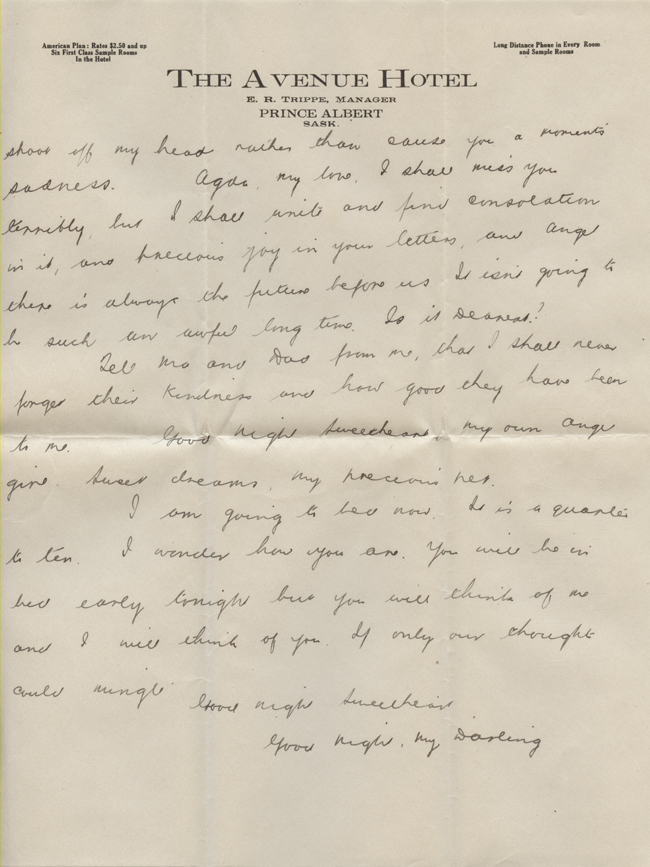 American Plan: Rates $2.50 and up
Six First Class Sample Rooms
In the Hotel
Long Distance Phone in Every Room
and Sample Rooms
THE AVENUE HOTEL
E. R. TRIPPE, MANAGER
PRINCE ALBERT
SASK.
shoot off my head rather than cause you a moments
sadness. my love, I shall miss you
terribly, but I shall write and find consolation
in it, and precious joy in your letters, and
there is always the future before us It isn't going to
be such an awful long time. Is it Dearest?
Tell Ma and Dad from me, that I shall never
forget their kindness and how good they have been
to me. Good night sweetheart, my own angel
girl. Sweet dreams, my precious pet.
I am going to bed now. It is a quarter
to ten. I wonder how you are. You will be in
bed early tonight but you will think of me
and I will think of you. If only our thoughts
could mingle Good night sweetheart
Good night, my Darling